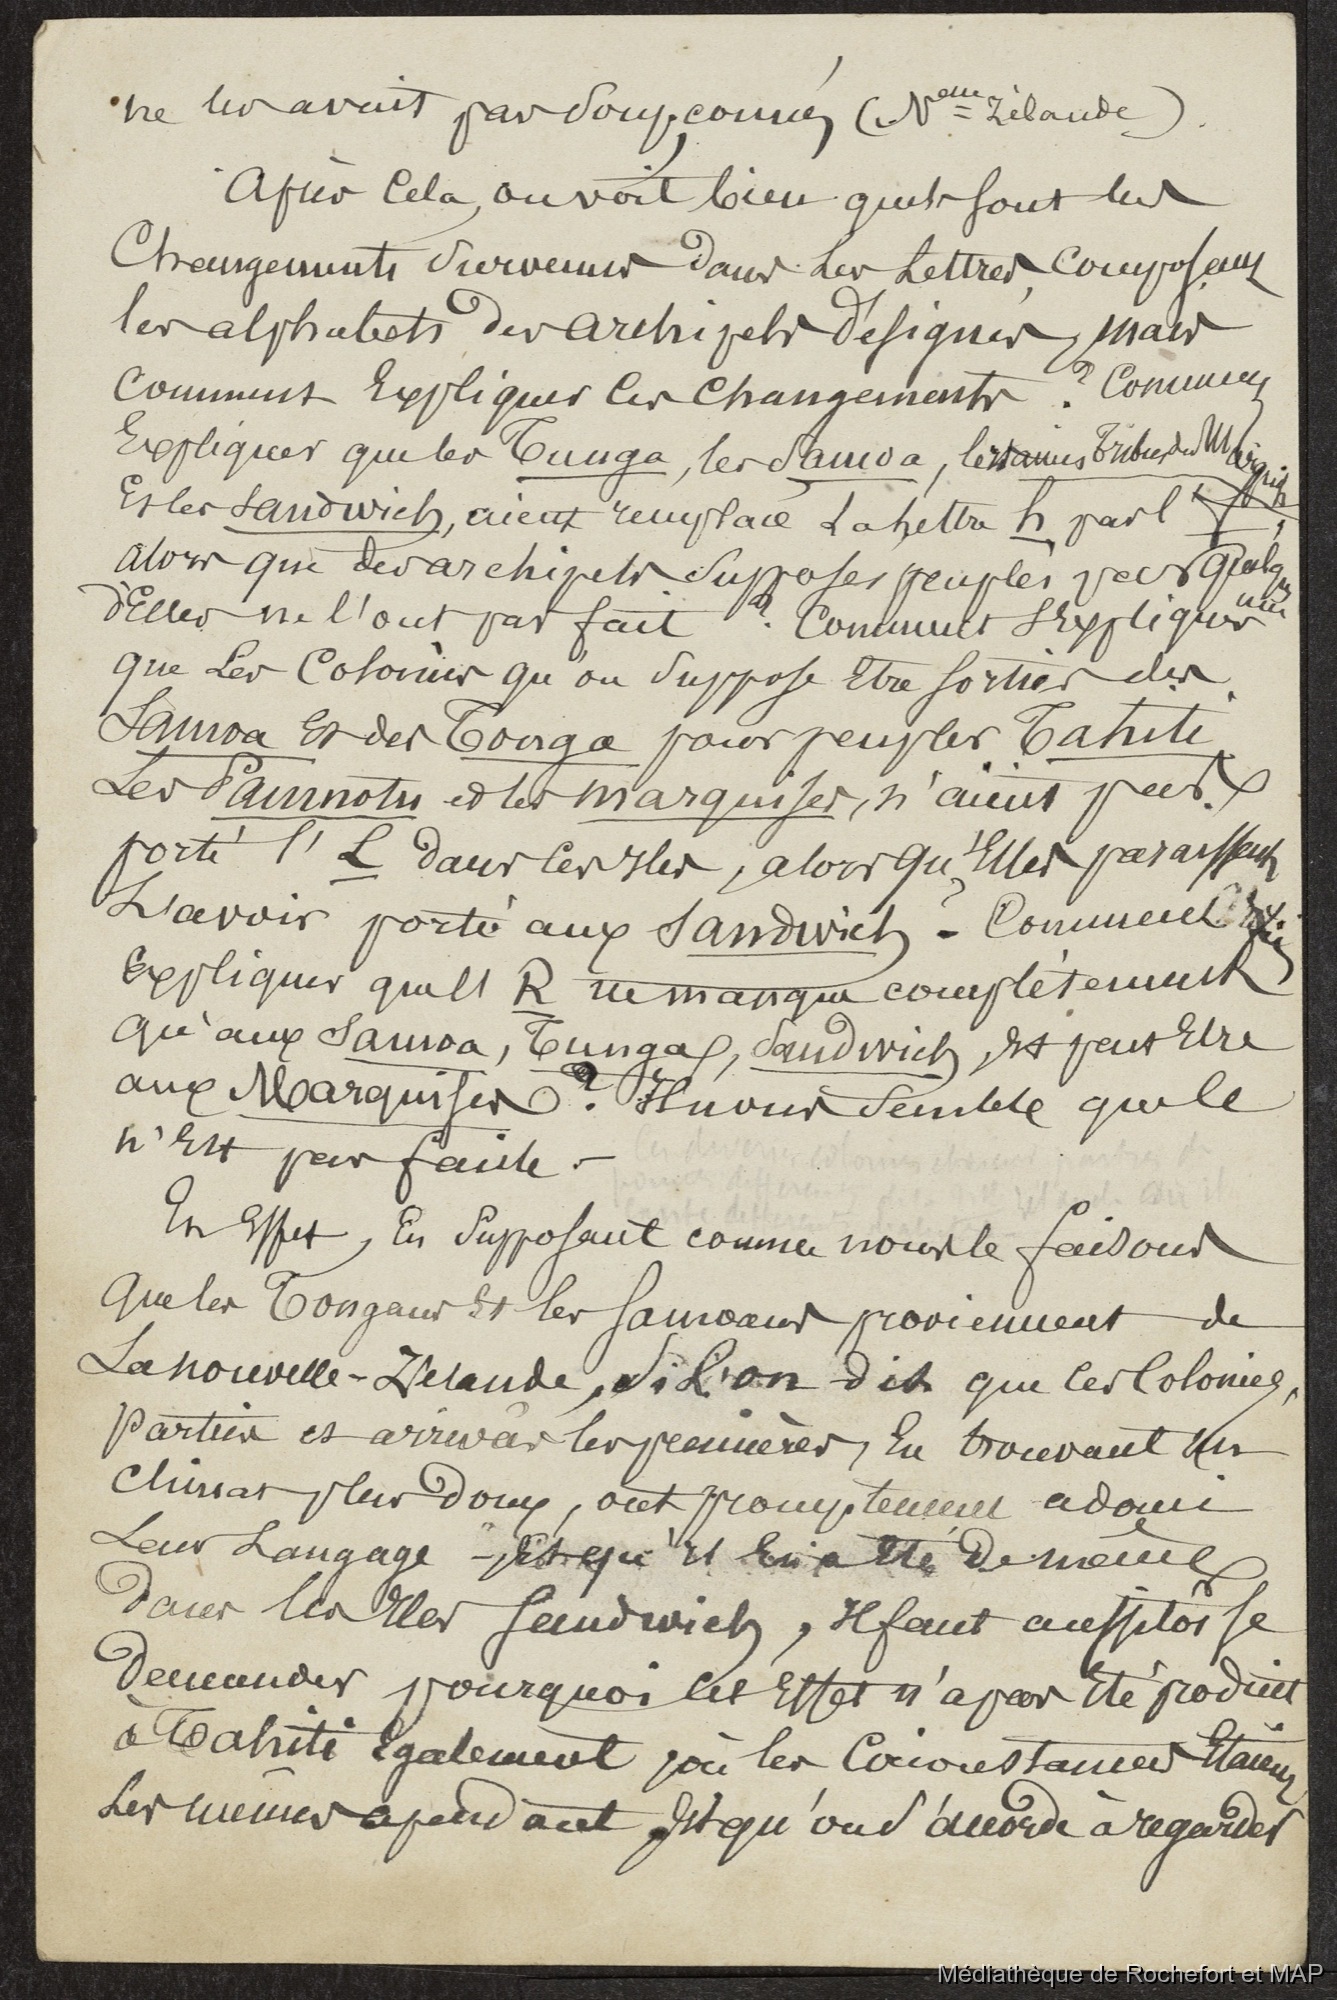 ne les avait pas soupçonnés (Nelle = Zélande).
Après cela, on voit bien quels sont les
Changements survenus dans les Lettres, composant
les alphabets des archipels désignés, mais
comment Expliquer ces changements ? Comment
Expliquer que les Tunga, les Samoa, certaines tribus des Marquises
Et les Sandwich, aient remplacé La Lettre h par l'
alors que des archipels supposés peuplés par quelques unes
d'Elles ne l'ont pas fait ? Comment s'Expliquer
que Les Colonies qu'on suppose Etre sorties des
Samoa Et des Tonga pour peupler Tahiti
Les Paumotu et les marquises, n'aient pas
porté l' L dans ces Iles, alors qu'Elles paraissent
L'avoir porté aux Sandwich ? - Comment
Expliquer que l' R ne manque complètement
qu'aux Samoa, Tunga, Sandwich, Et peut Etre
aux Marquises ? Il nous semble que le
n'Est pas facile. -
En Effet, En supposant comme nous le faisons
Que les Tongans Et les Samoans proviennent de
La nouvelle-Zélande, si L'on dit que ces Colonies,
parties et arrivées les premières, En trouvant un
climat plus doux, ont promptement adouci
Leur Langage - Et qu'il En a Eté De même
Dans les Iles Sandwich, Il faut aussitôt se
Demander pourquoi cet Effet n'a pas Eté produit
à Tahiti Egalement, où les Circonstances Etaient
Les mêmes cependant, Et qu'on s'accorde à regarder
Médiathèque de Rochefort et MAP